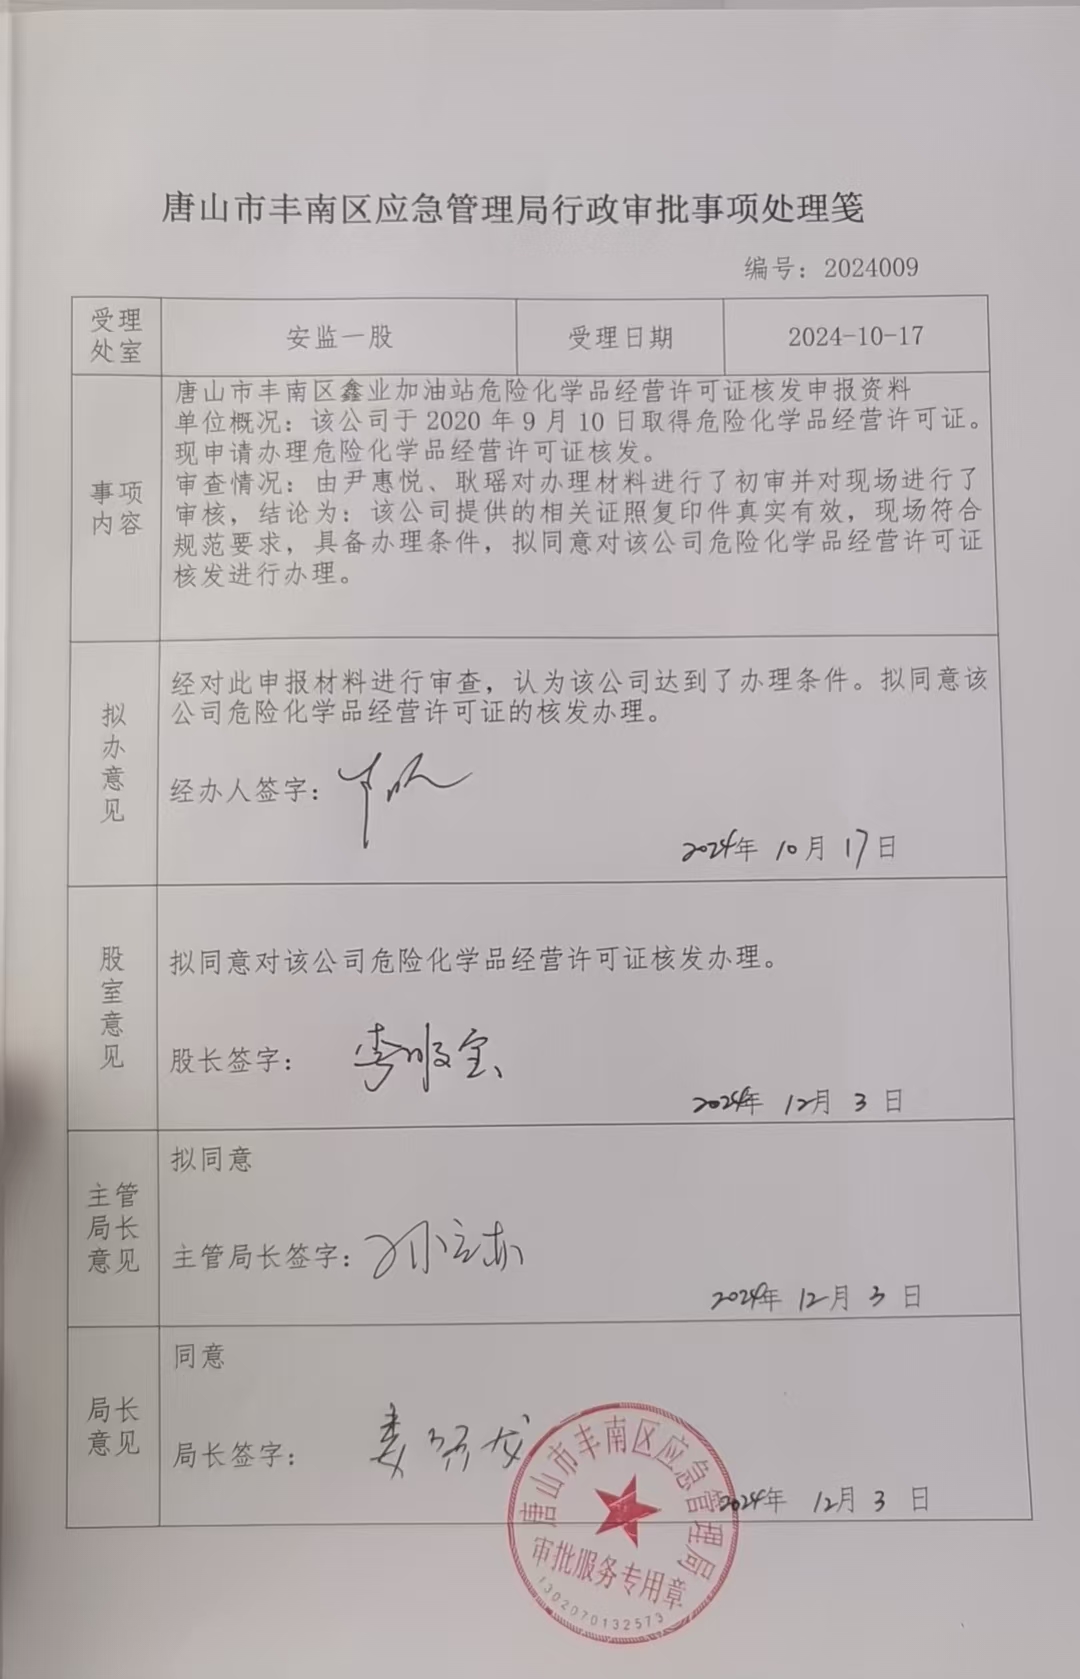 唐山市丰南区应急管理局行政审批事项处理笺
编号：2024009
受理
处室
安监一股
受理日期
2024-10-17
事项
内容
唐山市丰南区鑫业加油站危险化学品经营许可证核发申报资料
单位概况：该公司于 2020 年 9 月 10 日取得危险化学品经营许可证。
现申请办理危险化学品经营许可证核发。
审查情况：由尹惠悦、耿瑶对办理材料进行了初审并对现场进行了
审核，结论为：该公司提供的相关证照复印件真实有效，现场符合
规范要求，具备办理条件，拟同意对该公司危险化学品经营许可证
核发进行办理。
拟
办
意
见
经对此申报材料进行审查，认为该公司达到了办理条件。拟同意该
公司危险化学品经营许可证的核发办理。
经办人签字：
2024年 10月 17日
股
室
意
见
拟同意对该公司危险化学品经营许可证核发办理。
股长签字：
2024年 12月 3 日
主管
局长
意见
拟同意
主管局长签字：
2024年 12月 3 日
局长
意见
同意
局长签字：
2024年 12月 3 日
唐山市丰南区应急管理局
审批服务专用章
1302070132573